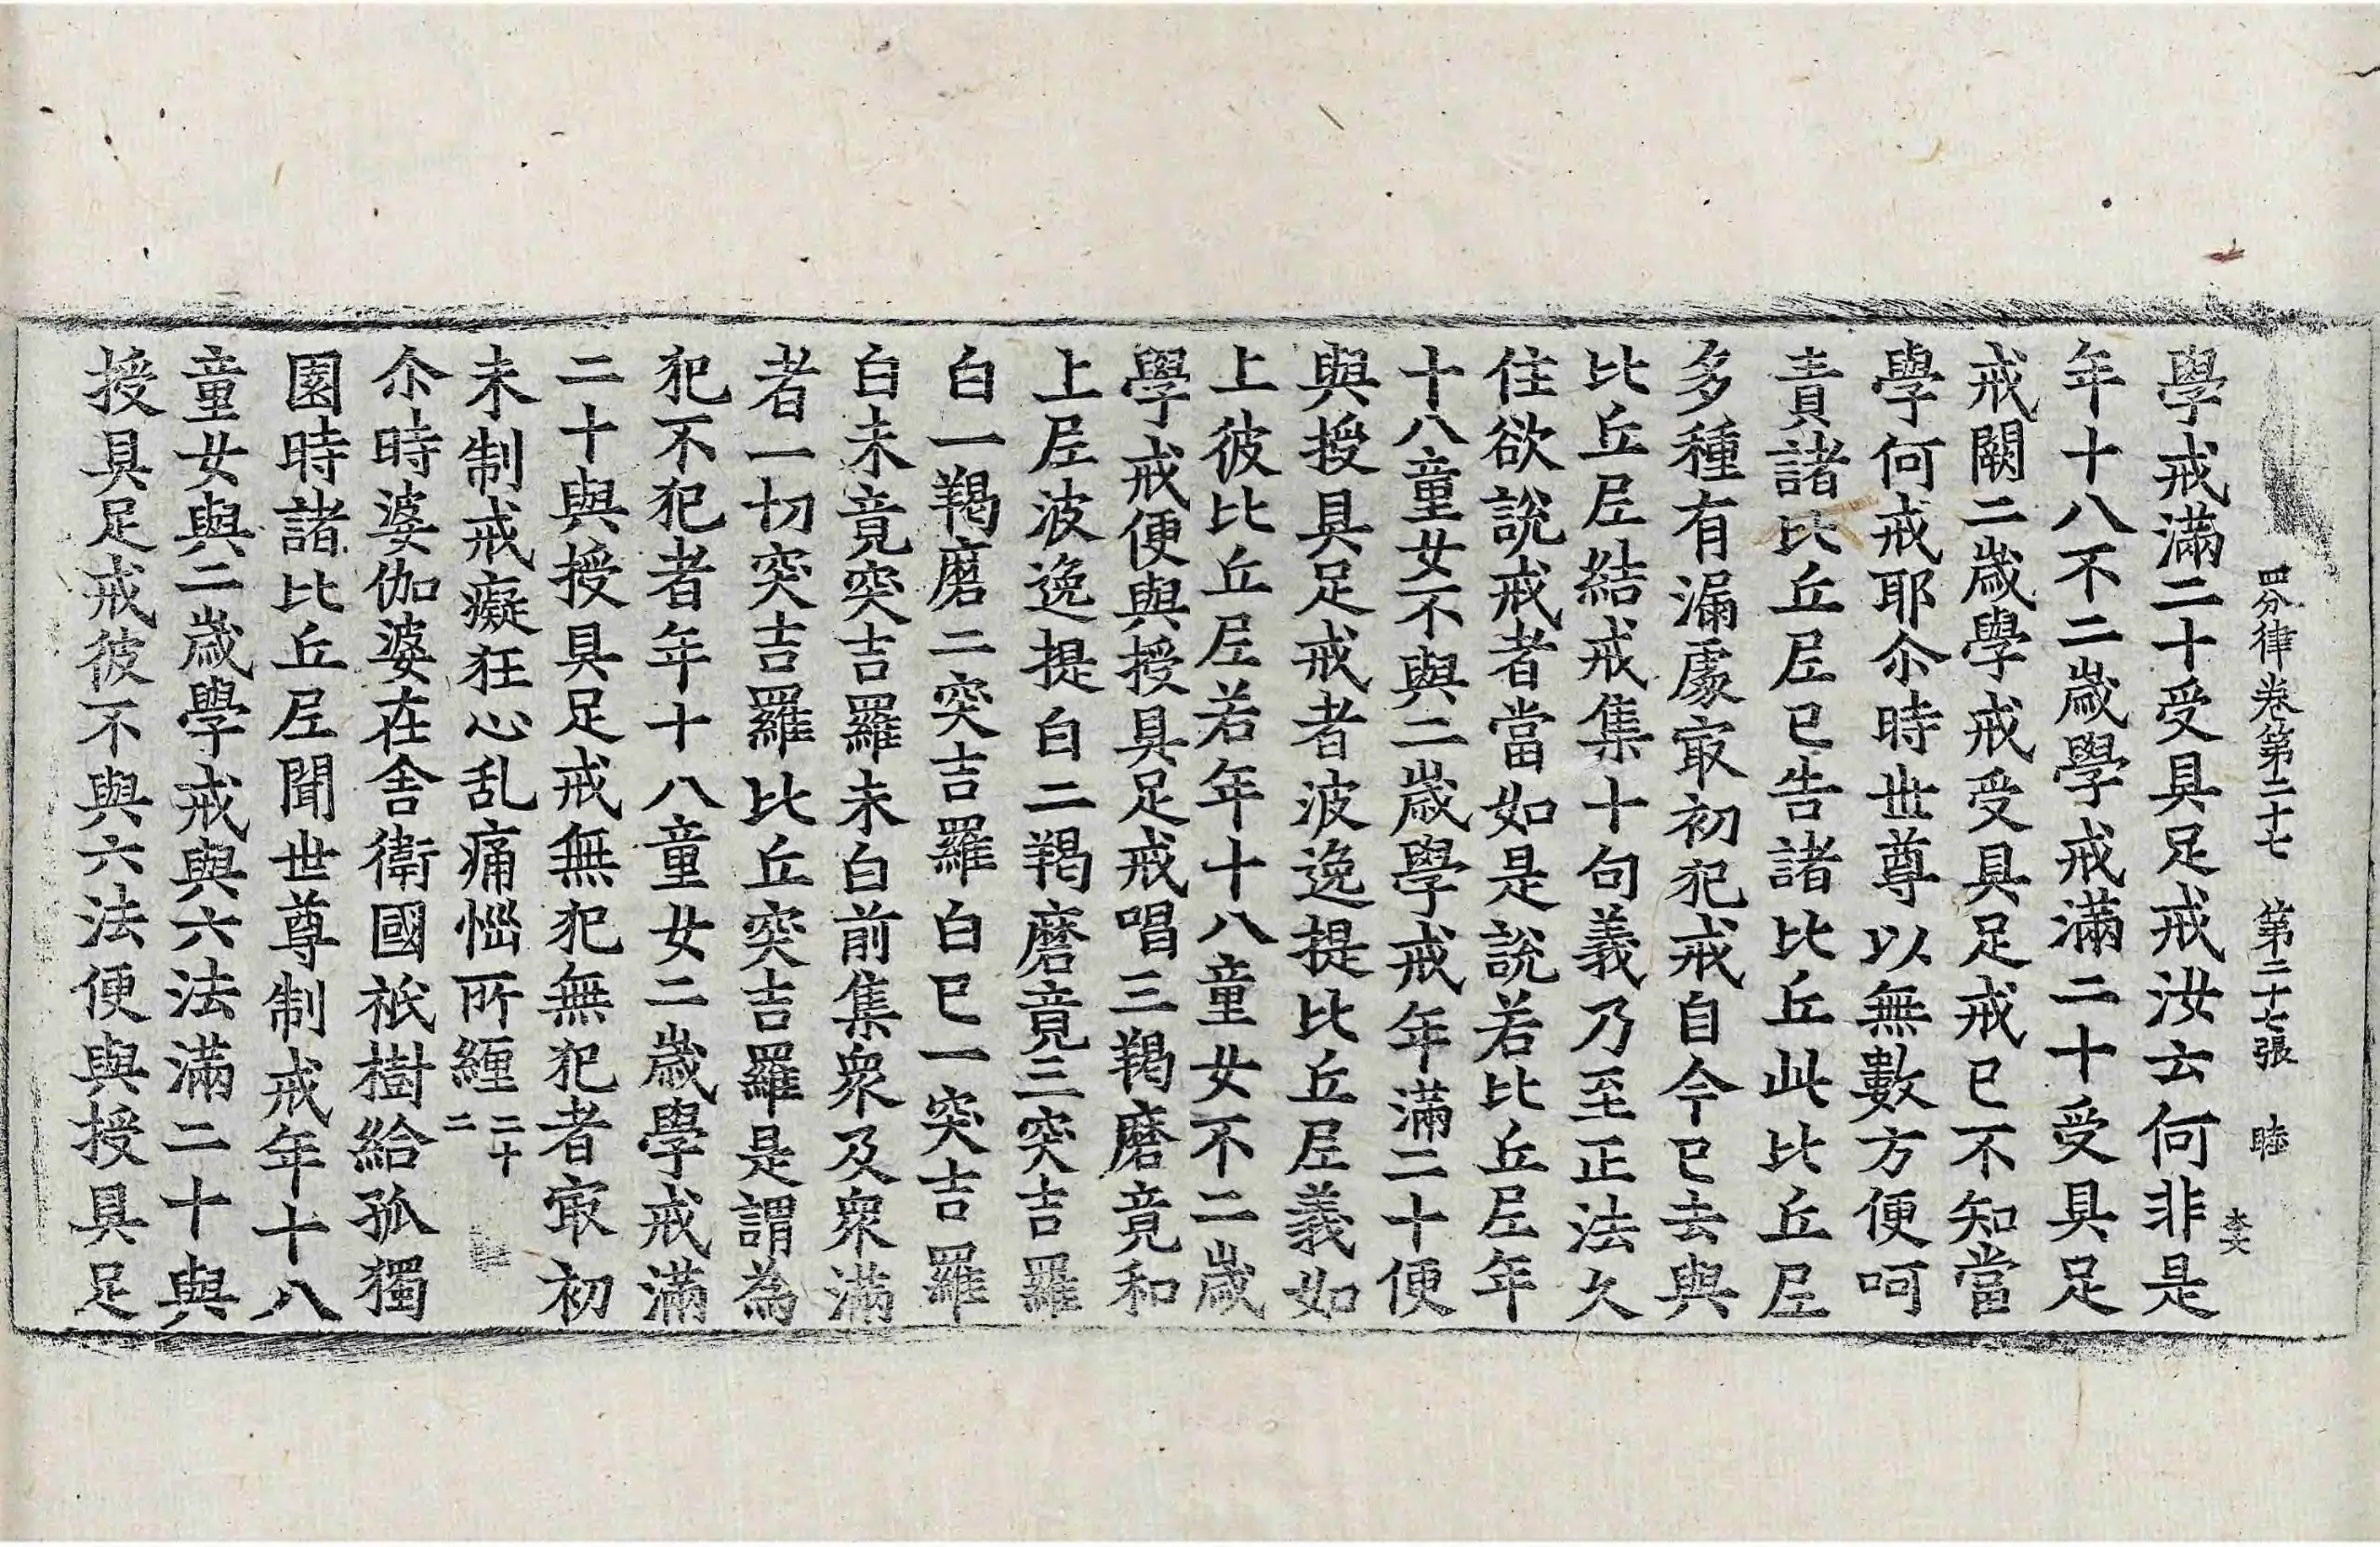 四分律卷第二十七 第二十七張 睦
學戒滿二十受具足戒汝云何非是
年十八不二歲學戒滿二十受具足
戒闕二歲學戒受具足戒已不知當
學何戒耶尒時世尊以無數方便呵
責諸比丘尼已告諸比丘此比丘尼
多種有漏處㝡初犯戒自今已去與
比丘尼結戒集十句義乃至正法久
住欲說戒者當如是說若比丘尼年
十八童女不與二歲學戒年滿二十便
與授具足戒者波逸提比丘尼義如
上彼比丘尼若年十八童女不二歲
學戒便與授具足戒唱三羯磨竟和
上尼波逸提白二羯磨竟三突吉羅
白一羯磨二突吉羅白已一突吉羅
白未竟突吉羅未白前集衆及衆滿
者一切突吉羅比丘突吉羅是謂為
犯不犯者年十八童女二歲學戒滿
二十與授具足戒無犯無犯者㝡初
未制戒癡狂心乱痛惱所纏二十二
尒時婆伽婆在舍衛國祇樹給孤獨
園時諸比丘尼聞世尊制戒年十八
童女與二歲學戒與六法滿二十與
授具足戒彼不與六法便與授具足